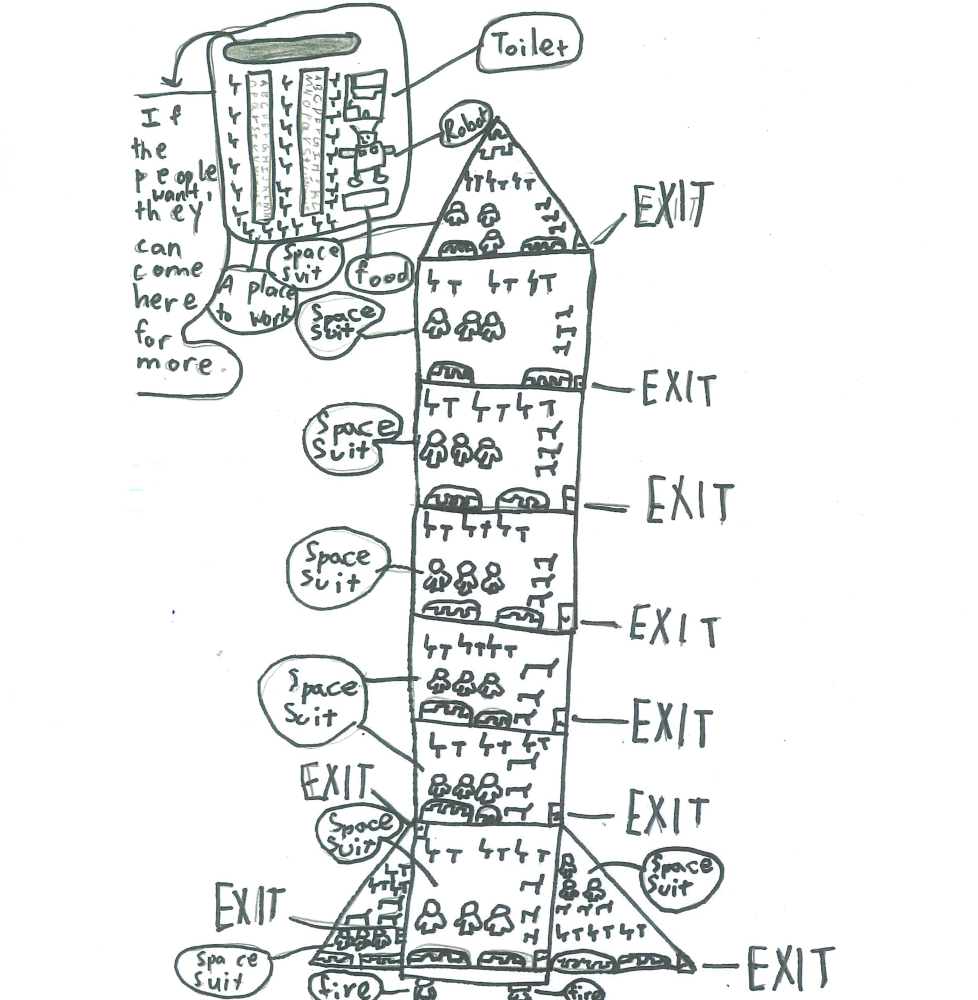 Toilet
Robot
If
the
people
want,
they
can
come
here
for
more.
Space
suit
food
A place
to work
EXIT
Space
suit
EXIT
Space
suit
EXIT
Space
suit
EXIT
Space
suit
EXIT
EXIT
EXIT
Space
suit
Space
suit
EXIT
Space
suit
EXIT
fire
fire